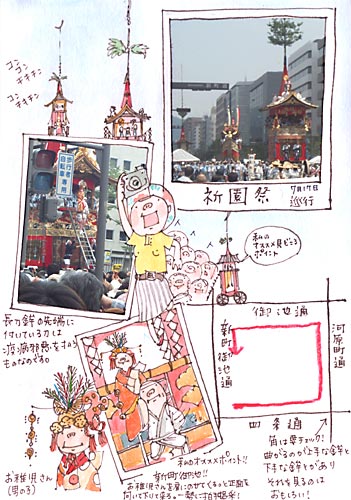 コンコン
チキチン
コンコン
チキチン
歩行者
自転車
専用
祇園祭
7月17日
巡行
私の
オススメ見どころ
ポイント
御池通
新町御池通
河原町通
四条通
角は要チェック!
曲がるのが上手な鉾と
下手な鉾とがあり
それを見るのは
おもしろい!
長刀鉾の先端に
付いている刀は
疫病邪悪をはらう
ものなのである
お稚児さん
(男の子)
私のオススメポイント!!
新町御池!!
お稚児さんを肩にのせてくるっと正面を
向いて下りて来る。